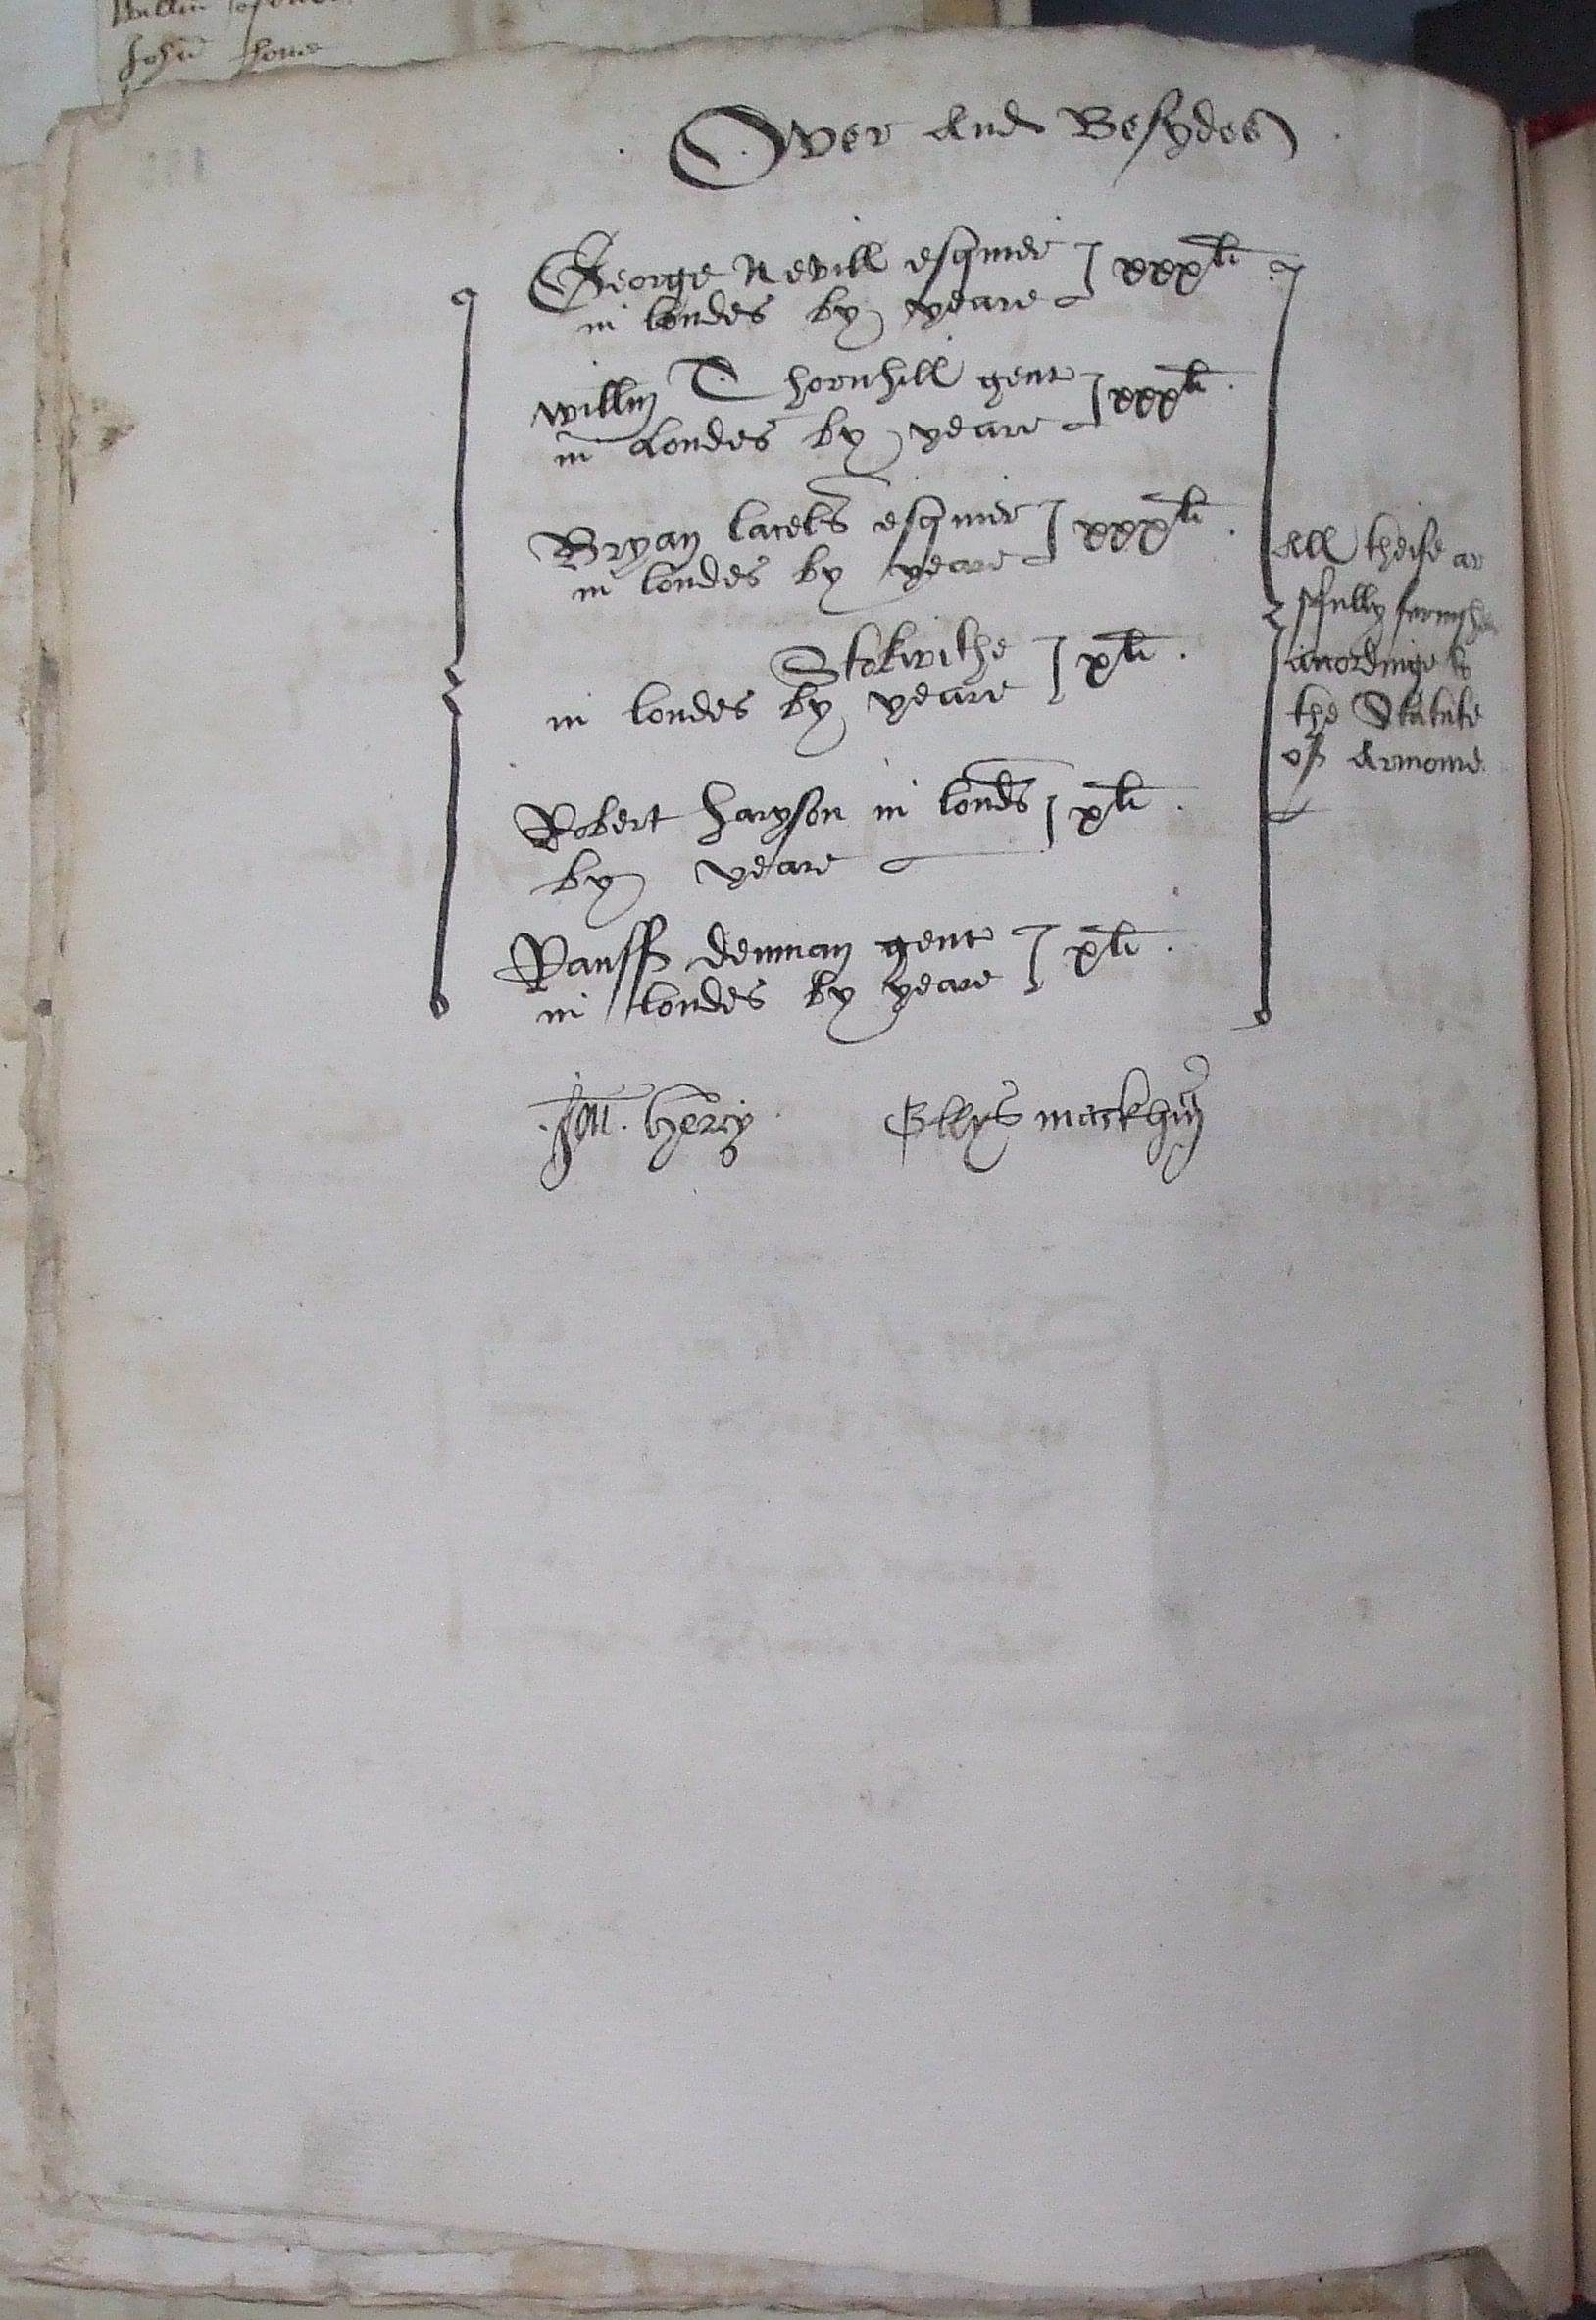 John
Over And Besydes
George Nevill esquier xxx li
in londes by yeare
Willm Thornhill gent xxx li
in Londes by yeare
Bryan lacels esquier xxx li
in londes by yeare
Stokwithe x li
in londes by yeare
Robert haryson in londs x li
by yeare
Rauff denman gent x li
in londes by yeare
All theise ar
fully furnyshed
accordinge to
the Statute
of Armoure
Jon. hercy Ellys markhm